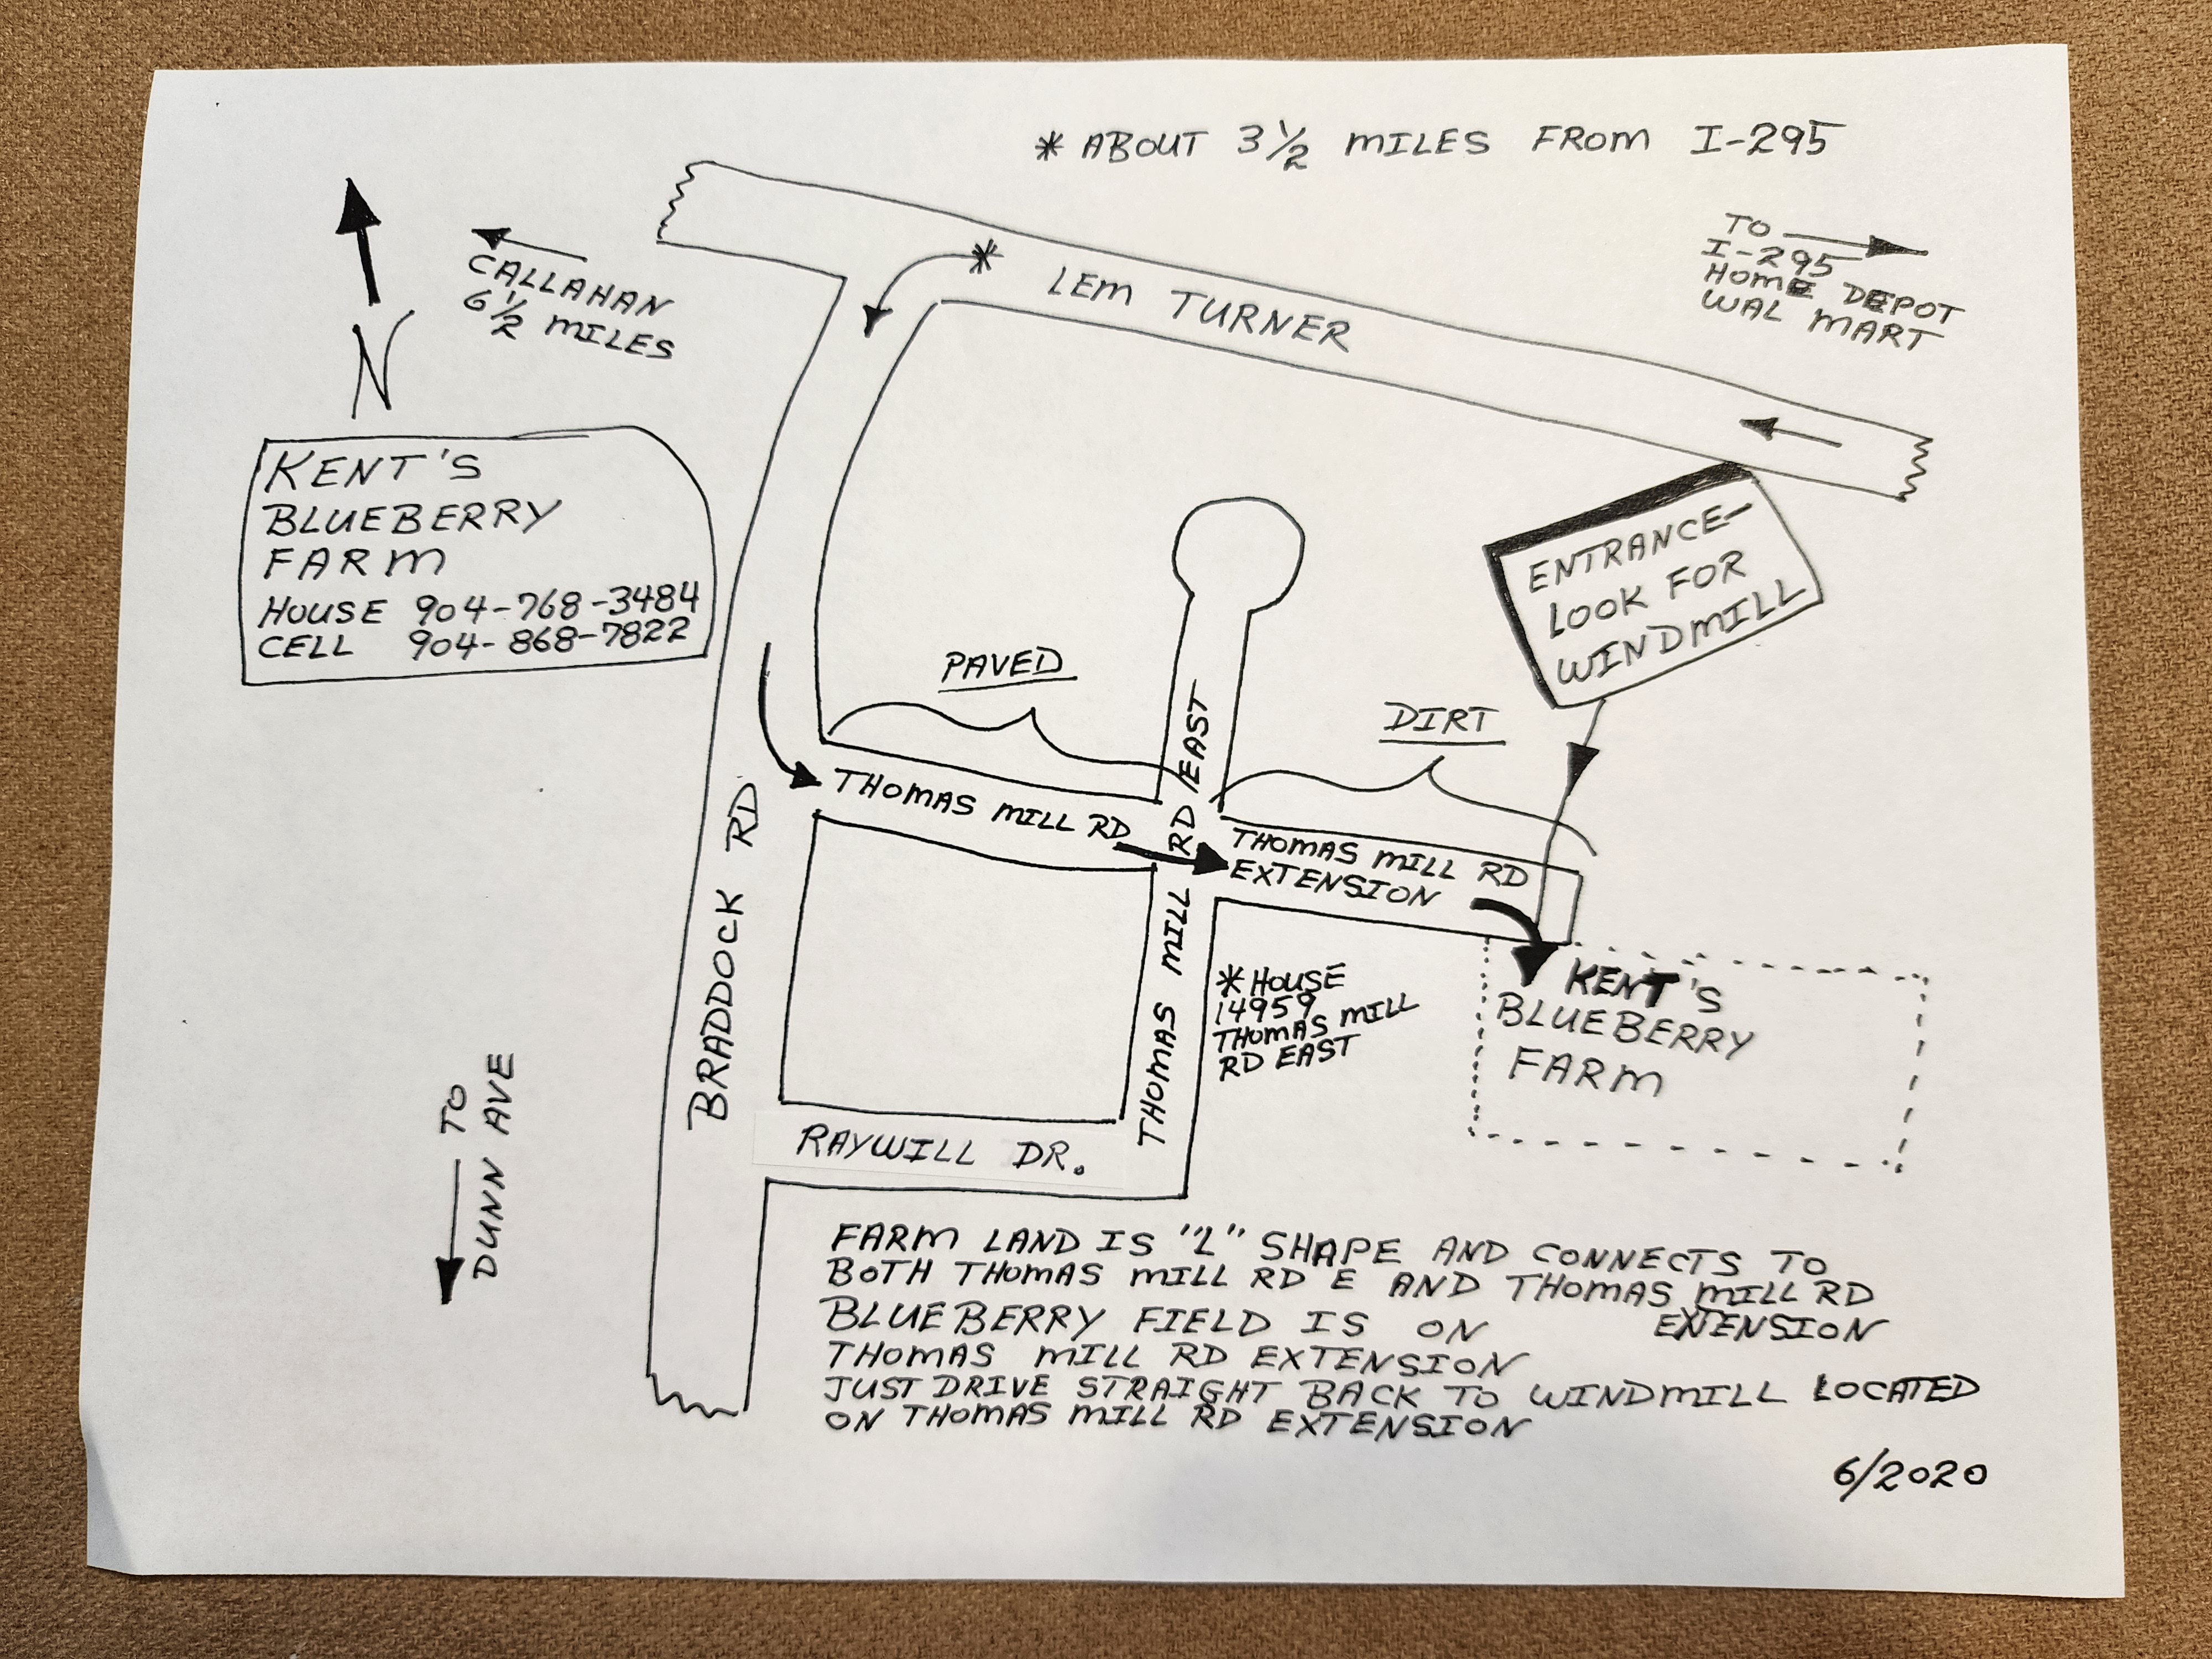 * ABOUT 3 1/2 MILES FROM I-295
TO
I-295
HOME DEPOT
WAL MART
CALLAHAN
6 1/2 MILES
N
*
LEM TURNER
KENT'S
BLUEBERRY
FARM
HOUSE 904-768-3484
CELL 904-868-7822
ENTRANCE-
LOOK FOR
WINDMILL
PAVED
DIRT
THOMAS MILL RD
THOMAS MILL RD EAST
THOMAS MILL RD
EXTENSION
BRADDOCK RD
* HOUSE
14959
THOMAS MILL
RD EAST
KENT'S
BLUEBERRY
FARM
RAYWILL DR.
TO
DUNN AVE
FARM LAND IS "L" SHAPE AND CONNECTS TO
BOTH THOMAS MILL RD E AND THOMAS MILL RD
EXTENSION
BLUEBERRY FIELD IS ON
THOMAS MILL RD EXTENSION
JUST DRIVE STRAIGHT BACK TO WINDMILL LOCATED
ON THOMAS MILL RD EXTENSION
6/2020